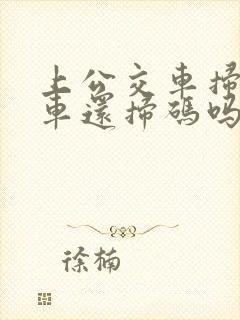 上公交車掃
車還掃碼吗
徐楠